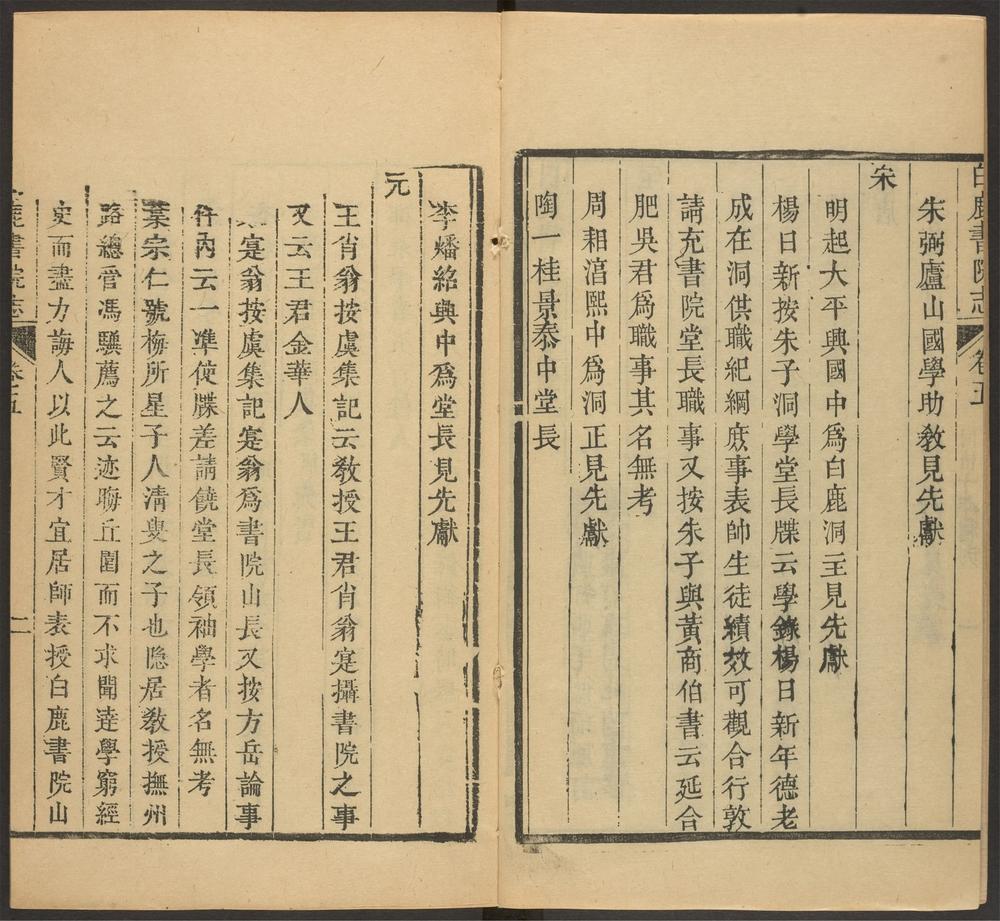 白鹿書院志 卷五
朱弼廬山國學助教見先獻
宋
明起大平興國中爲白鹿洞主見先獻
楊日新按朱子洞學堂長牒云學錄楊日新年德老
成在洞供職紀綱庶事表帥生徒績效可觀合行敦
請充書院堂長職事又按朱子與黃商伯書云延合
肥吳君爲職事其名無考
周耜淳熙中爲洞正見先獻
陶一桂景泰中堂長
李燔紹興中爲堂長見先獻
元
王肖翁按虞集記云教授王君肖翁寔攝書院之事
又云王君金華人
寔翁按虞集記寔翁爲書院山長又按方岳論事
件內云一準使牒差請饒堂長領袖學者名無考
葉宗仁號梅所星子人清叟之子也隱居教授撫州
路總管馮驥薦之云迹晦丘園而不求聞達學窮經
史而盡力誨人以此賢才宜居師表授白鹿書院山
鹿書院志 卷五 二